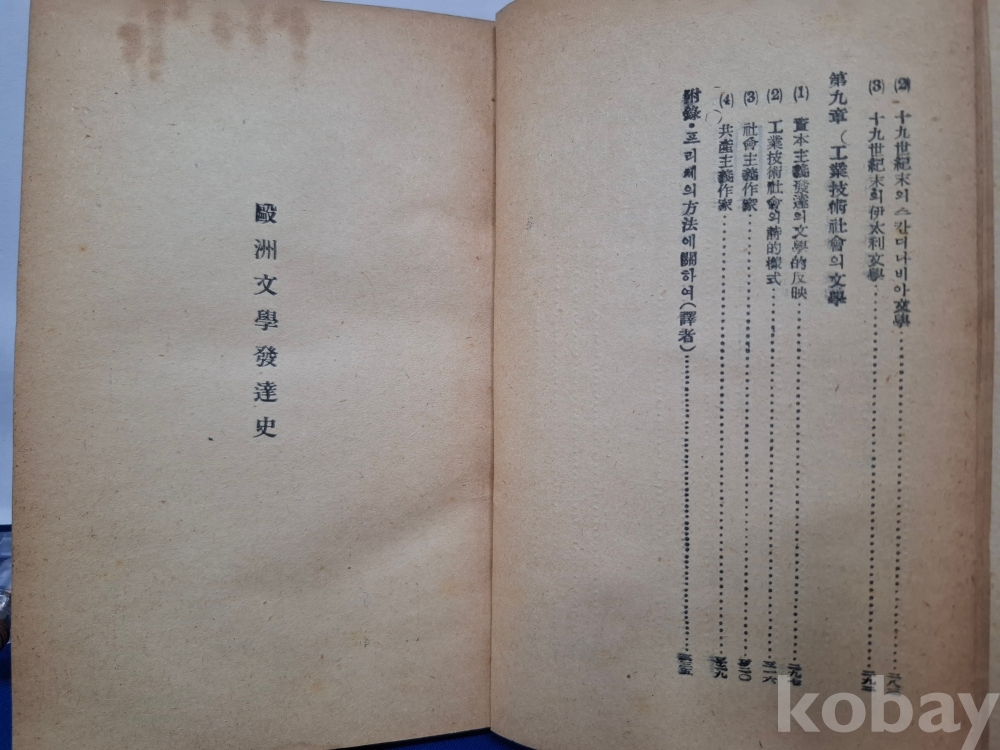 (2) 十九世紀末의스칸디나비아文學
(3) 十九世紀末의伊太利文學
第九章 (工業技術社會의文學
(1) 資本主義發達의文學的反映 二九七
(2) 工業技術社會의詩的樣式 三一六
(3) 社會主義作家
(4) 共產主義作家
附錄・프리체의方法에關하여(譯者)
毆洲文學發達史
kobay